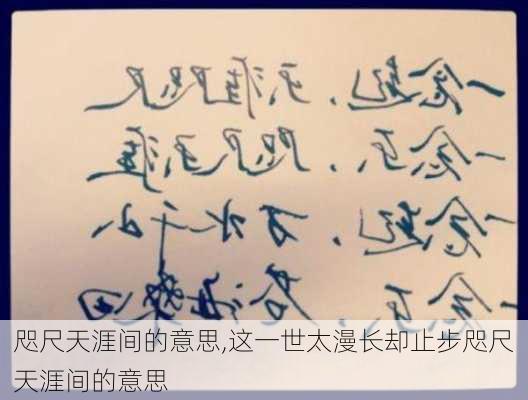 一念起,天涯咫尺
一念灭,咫尺天涯
一念起,万水千山
一念灭,沧海桑田
咫尺天涯间的意思,这一世太漫长却止步咫尺
天涯间的意思